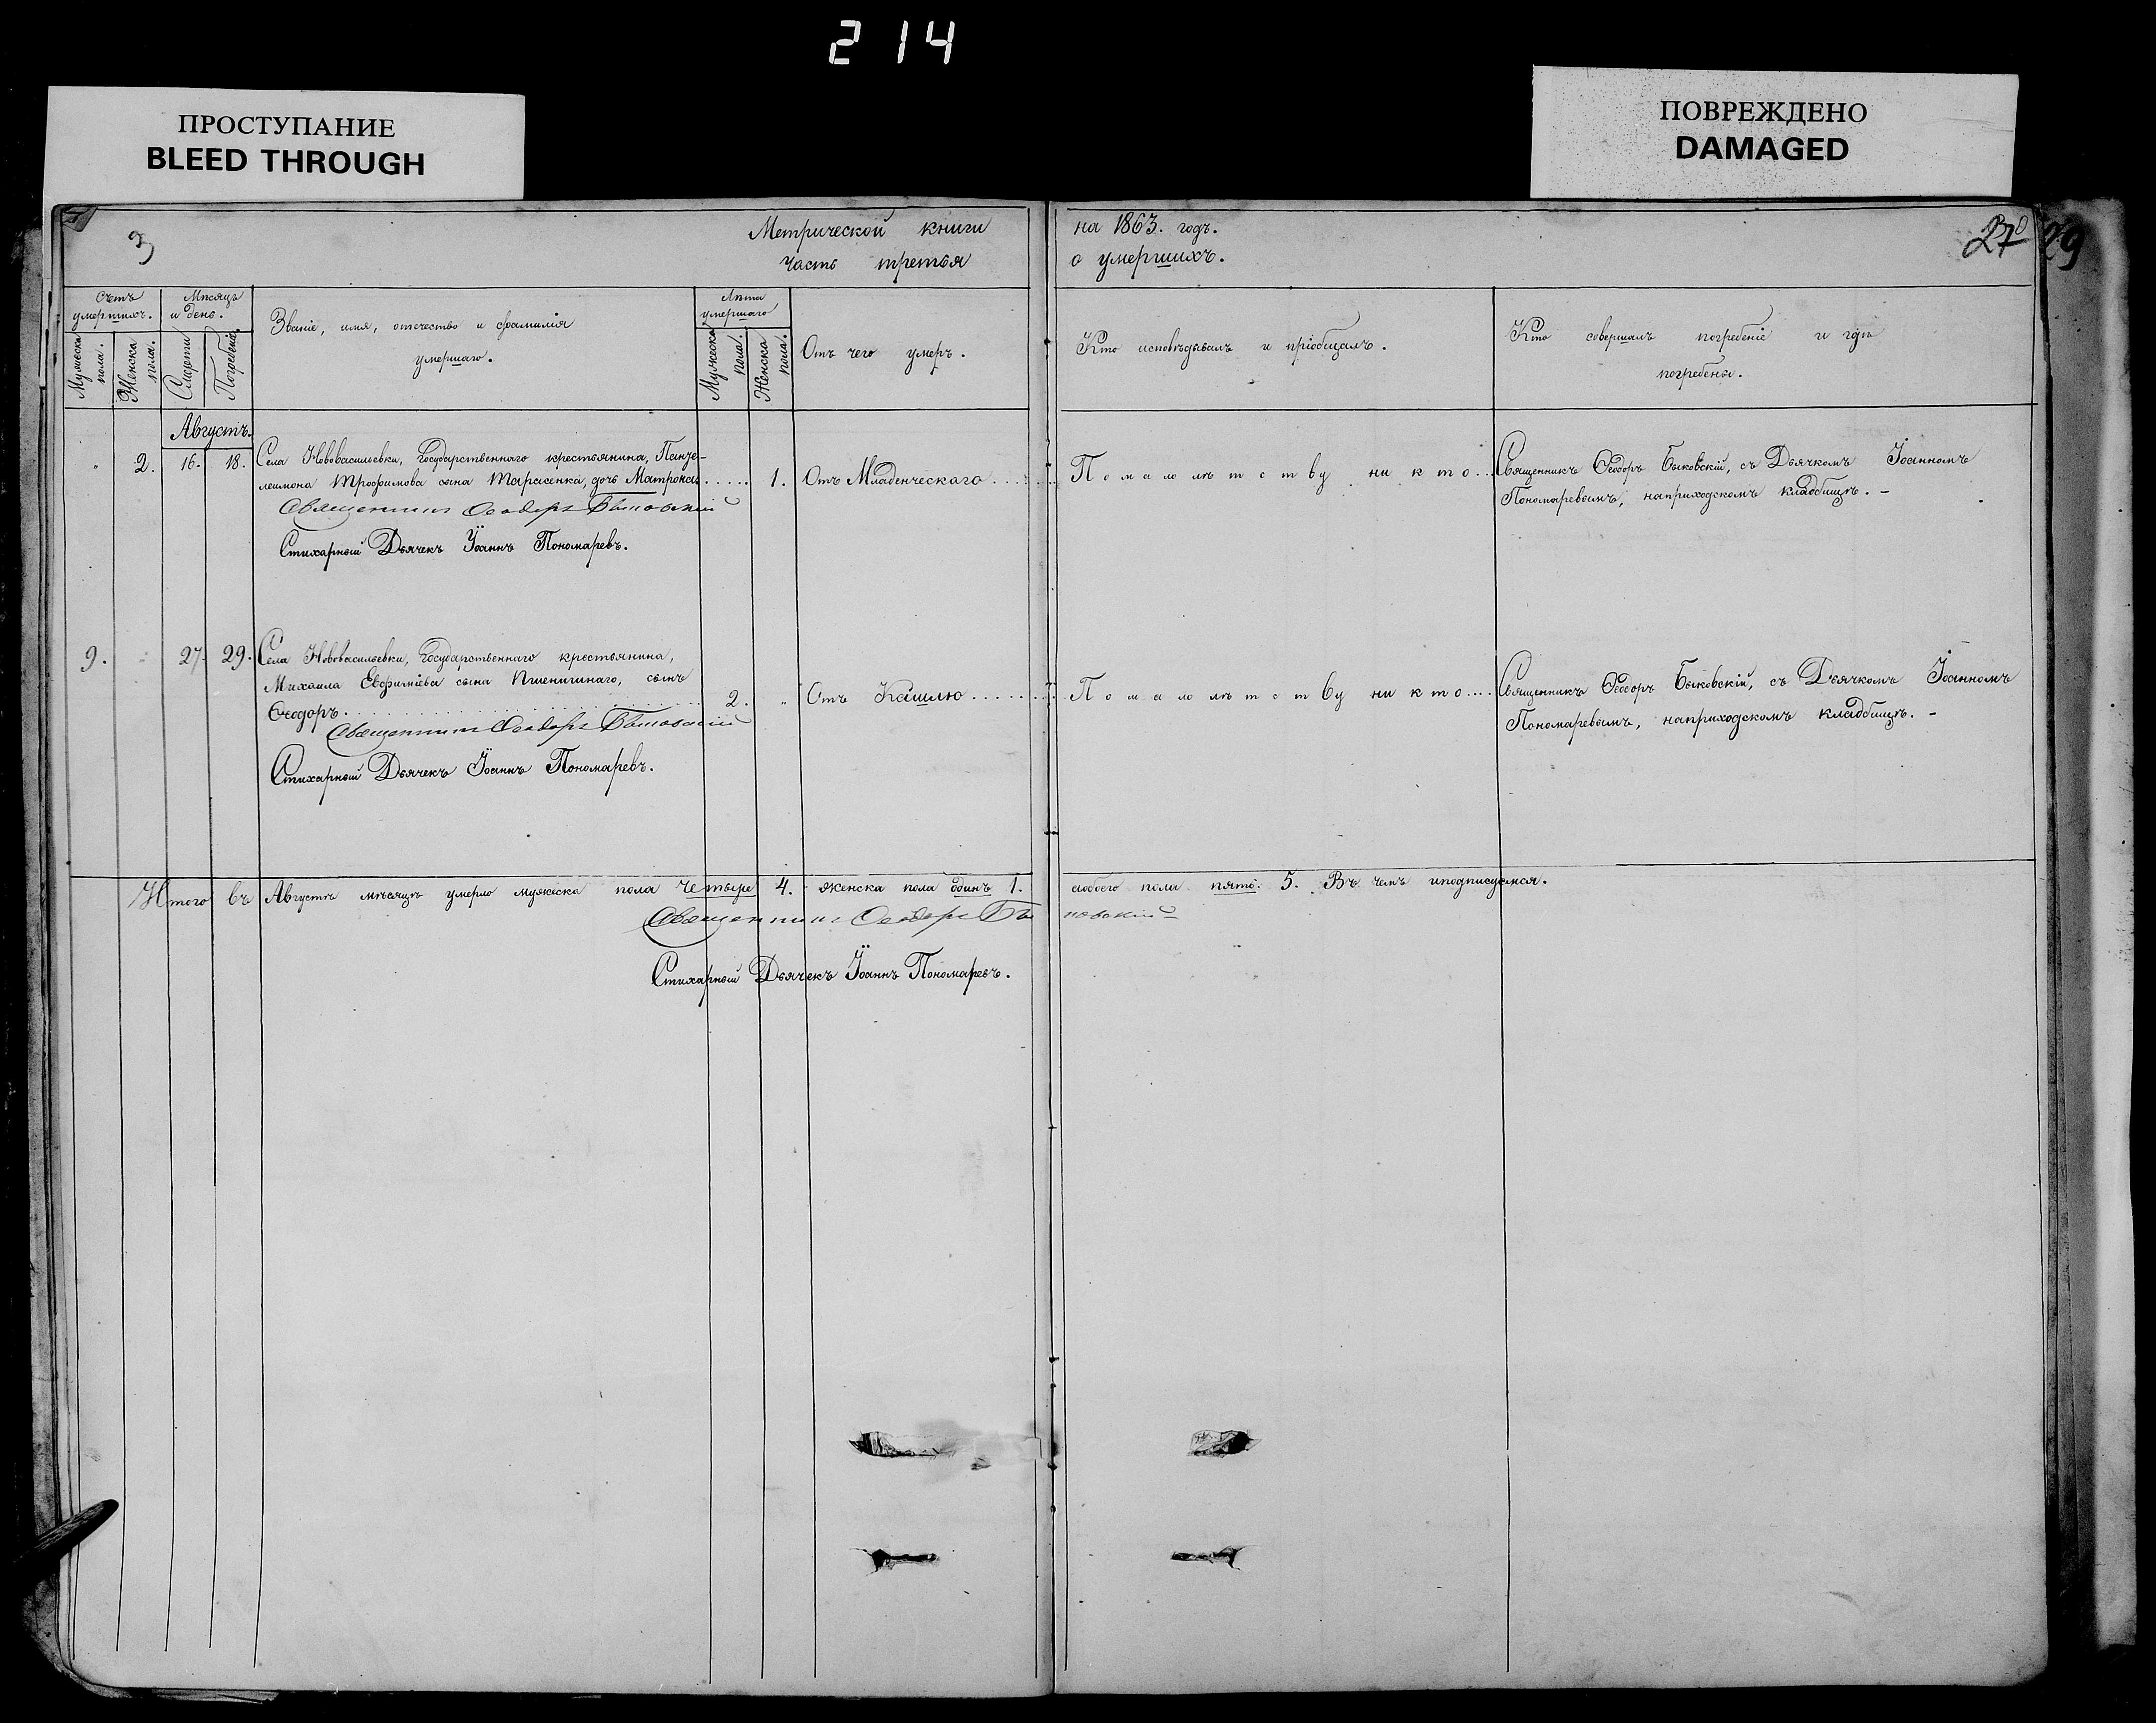 214
ПРОСТУПАНИЕ
BLEED THROUGH
ПОВРЕЖДЕНО
DAMAGED
Метрической книги на 1863. годъ.
часть третья о умершихъ.
27
29
Счетъ умершихъ.
Мужеска пола.
Женска пола.
Мѣсяцъ и день.
Смерти
Погребенія.
Званіе, имя, отечество и фамилія
умершаго.
Лѣта умершаго
Мужеска пола.
Женска пола.
Отъ чего умеръ.
Кто исповѣдывалъ и пріобщалъ.
Кто совершалъ погребеніе и гдѣ
погребены.
Августъ.
" 2. 16. 18. Села Нововасильевки, Государственнаго крестьянина, Панте-
леимона Трофимова сына Тарасенка, дочь Матрона ..... 1. Отъ Младенческаго ..... По малолѣтству никто...
Священникъ Ѳеодоръ Быковскій, съ Дьячкомъ Іоанномъ
Пономаревымъ, наприходскомъ кладбищѣ. –
Священникъ Ѳеодоръ Быковскій
Стихарный Дьячекъ Іоаннъ Пономаревъ.
9. 27. 29. Села Нововасильевки, Государственнаго крестьянина,
Михаила сына Пшеничнаго, сынъ
Ѳеодоръ ..... 2. " Отъ Кашлю ..... По малолѣтству никто....
Священникъ Ѳеодоръ Быковскій, съ Дьячкомъ Іоанномъ
Пономаревымъ, наприходскомъ кладбищѣ. –
Священникъ Ѳеодоръ Быковскій
Стихарный Дьячекъ Іоаннъ Пономаревъ.
Итого въ Августѣ мѣсяцѣ умерло мужеска пола четыре 4. женска пола одинъ 1. а обоего пола пять. 5. Въ чемъ иподписуемся.
Священникъ Ѳеодоръ Быковскій
Стихарный Дьячекъ Іоаннъ Пономаревъ.